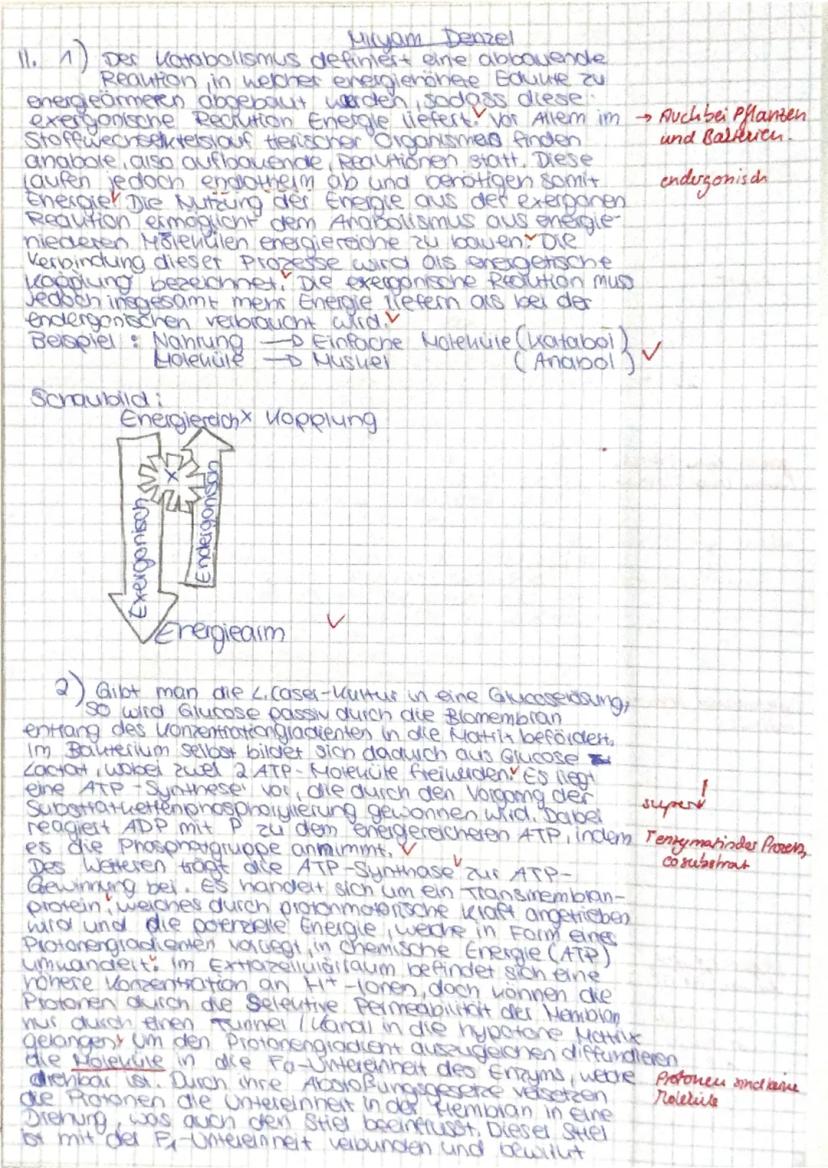 Miryam Denzel
II. 1) Der Katabolismus definiert eine abbauende
Reaktion, in welcher energiehöhere Edukte zu
energieärmeren abgebaut werden, sodass diese
exergonische Reaktion Energie liefert. Vor Allem im
→ Auch bei Pflanzen
und Bakterien.
Stoffwechselkreislauf tierischer Organismen finden
anabole, also aufbauende, Reaktionen statt. Diese
laufen jedoch endotherm ab und benötigen somit
endergonisch
Energie. Die Nutzung der Energie aus der exergonen
Reaktion ermöglicht dem Anabolismus aus energie-
niederen Molekülen energiereiche zu bauen. Die
Verbindung dieser Prozesse wird als energetische
Kopplung bezeichnet. Die exergonische Reaktion muss
jedoch insgesamt mehr Energie liefern als bei der
endergonischen verbraucht wird.
Beispiel: Nahrung → Einfache Moleküle (Katabol)
Moleküle → Muskel (Anabol)
Schaubild:
Energiereich x Kopplung
x
Exergonisch
Endergonisch
Energiearm
2) Gibt man die L.Casei-Kultur in eine Glucoselösung,
so wird Glucose passiv durch die Biomembran
entlang des Konzentrationgradienten in die Matrix befördert.
Im Bakterium selbst bildet sich dadurch aus Glucose
Lactat, wobei zwei 2 ATP-Moleküle freiwerden. Es liegt
eine ATP-Synthese vor, die durch den Vorgang der
Substratkettenphosphorylierung gewonnen wird. Dabei
super!
reagiert ADP mit P zu dem energiereicheren ATP, indem
es die Phosphatgruppe annimmt.
enzymatischer Prozess,
cosubstrat
Des Weiteren trägt die ATP-Synthase zur ATP-
Gewinnung bei. Es handelt sich um ein Transmembran-
protein, welches durch protonmotorische Kraft angetrieben
wird und die potenzielle Energie, welche in Form eines
Protonengradienten vorliegt, in chemische Energie (ATP)
umwandelt. Im Extrazellulärraum befindet sich eine
höhere Konzentration an H⁺-Ionen, doch können die
Protonen durch die Selektive Permeabilität der Membran
nur durch einen Tunnel / Kanal in die hypotone Matrix
gelangen. Um den Protonengradient auszugleichen diffundieren
die Moleküle in die F₀-Untereinheit des Enzyms, welche
Protonen sind keine
Moleküle
drehbar ist. Durch ihre Abstoßungsgesetze versetzen
die Protonen die Untereinheit in der Membran in eine
Drehung, was auch den Stiel beeinflusst. Dieser Stiel
ist mit der F₁-Untereinheit verbunden und bewirkt